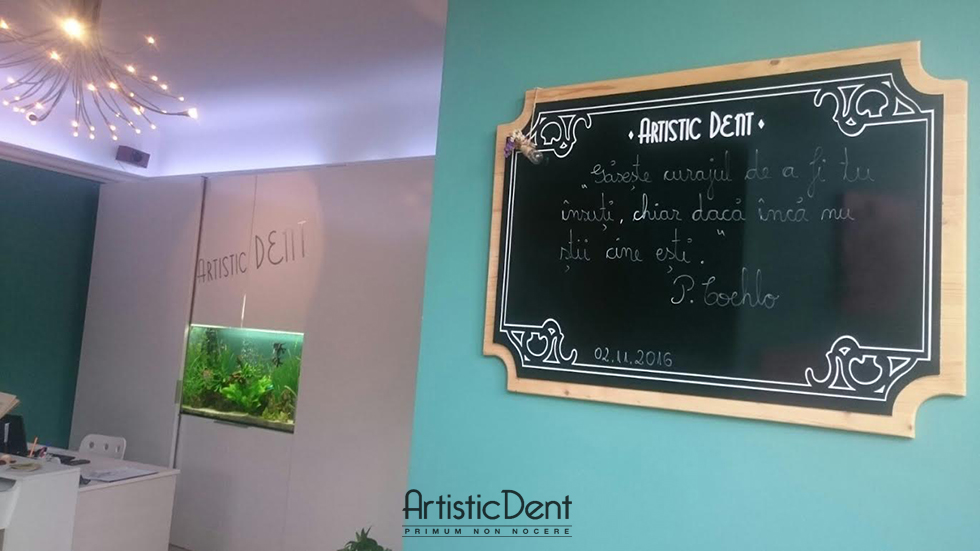 ARTISTIC DENT
ARTISTIC DENT
„Găsește curajul de a fi tu
însuți, chiar dacă încă nu
știi cine ești.”
P. Coehlo
02.11.2016
ArtisticDent
PRIMUM NON NOCERE